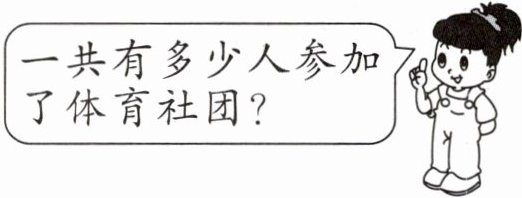 一共有多少人参加
了体育社团？